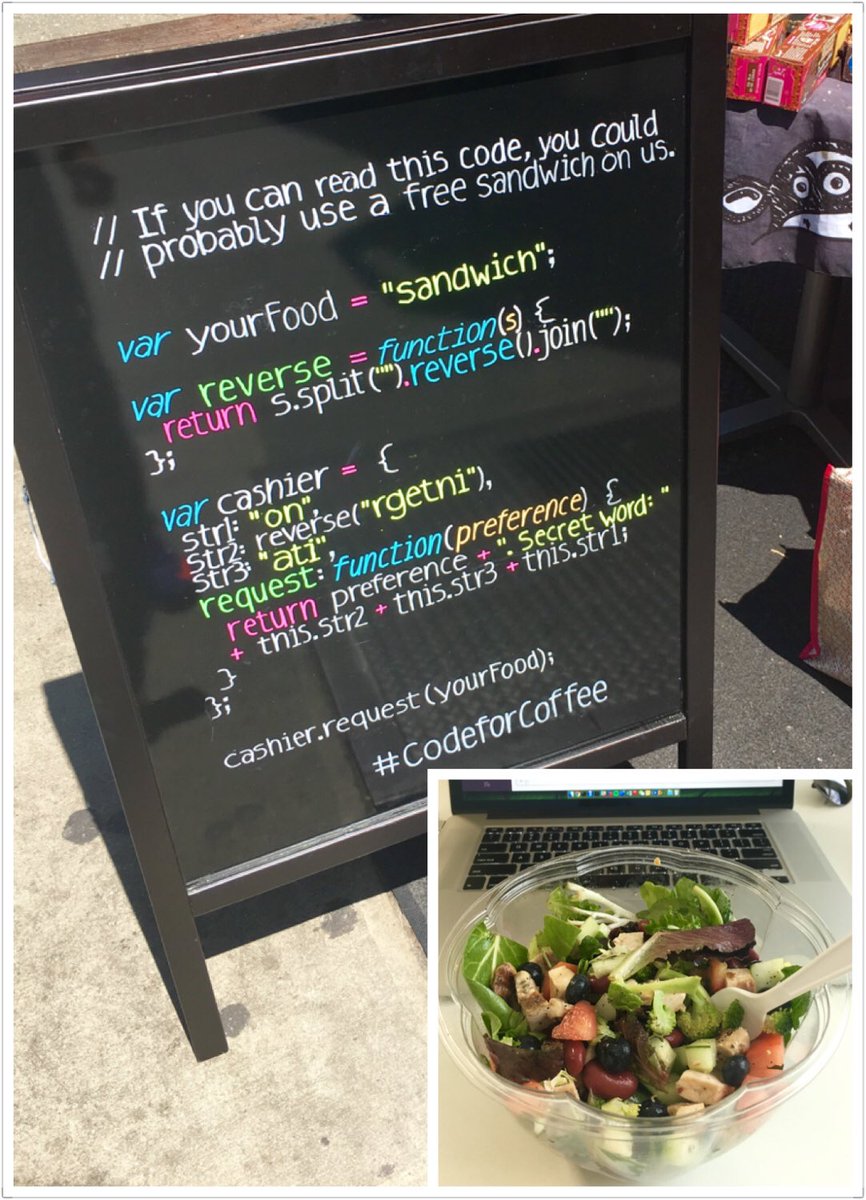 // If you can read this code, you could
// probably use a free sandwich on us.
var yourFood = "sandwich";
var reverse = function(s) {
return s.split("").reverse().join("");
};
var cashier = {
str1: "on",
str2: reverse("rgetni"),
str3: "ati",
request: function(preference) {
return preference + ". Secret word: "
+ this.str2 + this.str3 + this.str1;
}
};
cashier.request(yourFood);
#CodeforCoffee